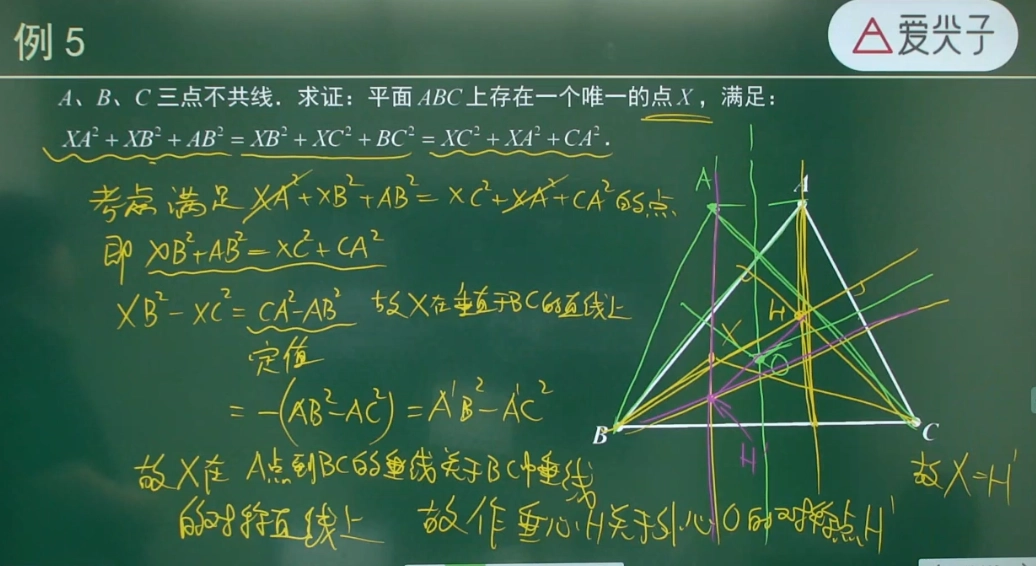 例 5
爱尖子
A、B、C 三点不共线．求证：平面 ABC 上存在一个唯一的点 X，满足：
XA²+XB²+AB²=XB²+XC²+BC²=XC²+XA²+CA².
考虑满足 XA²+XB²+AB²=XC²+XA²+CA²的点
即 XB²+AB²=XC²+CA²
XB²-XC²=CA²-AB² 故X在垂直于BC的直线上
定值
=-(AB²-AC²)=A'B²-A'C²
故X在 A点到BC的垂线关于BC中垂线
的对称直线上 故作垂心H关于外心O的对称点H'
故X=H'
A'
A
H
X
O
B
C
H'